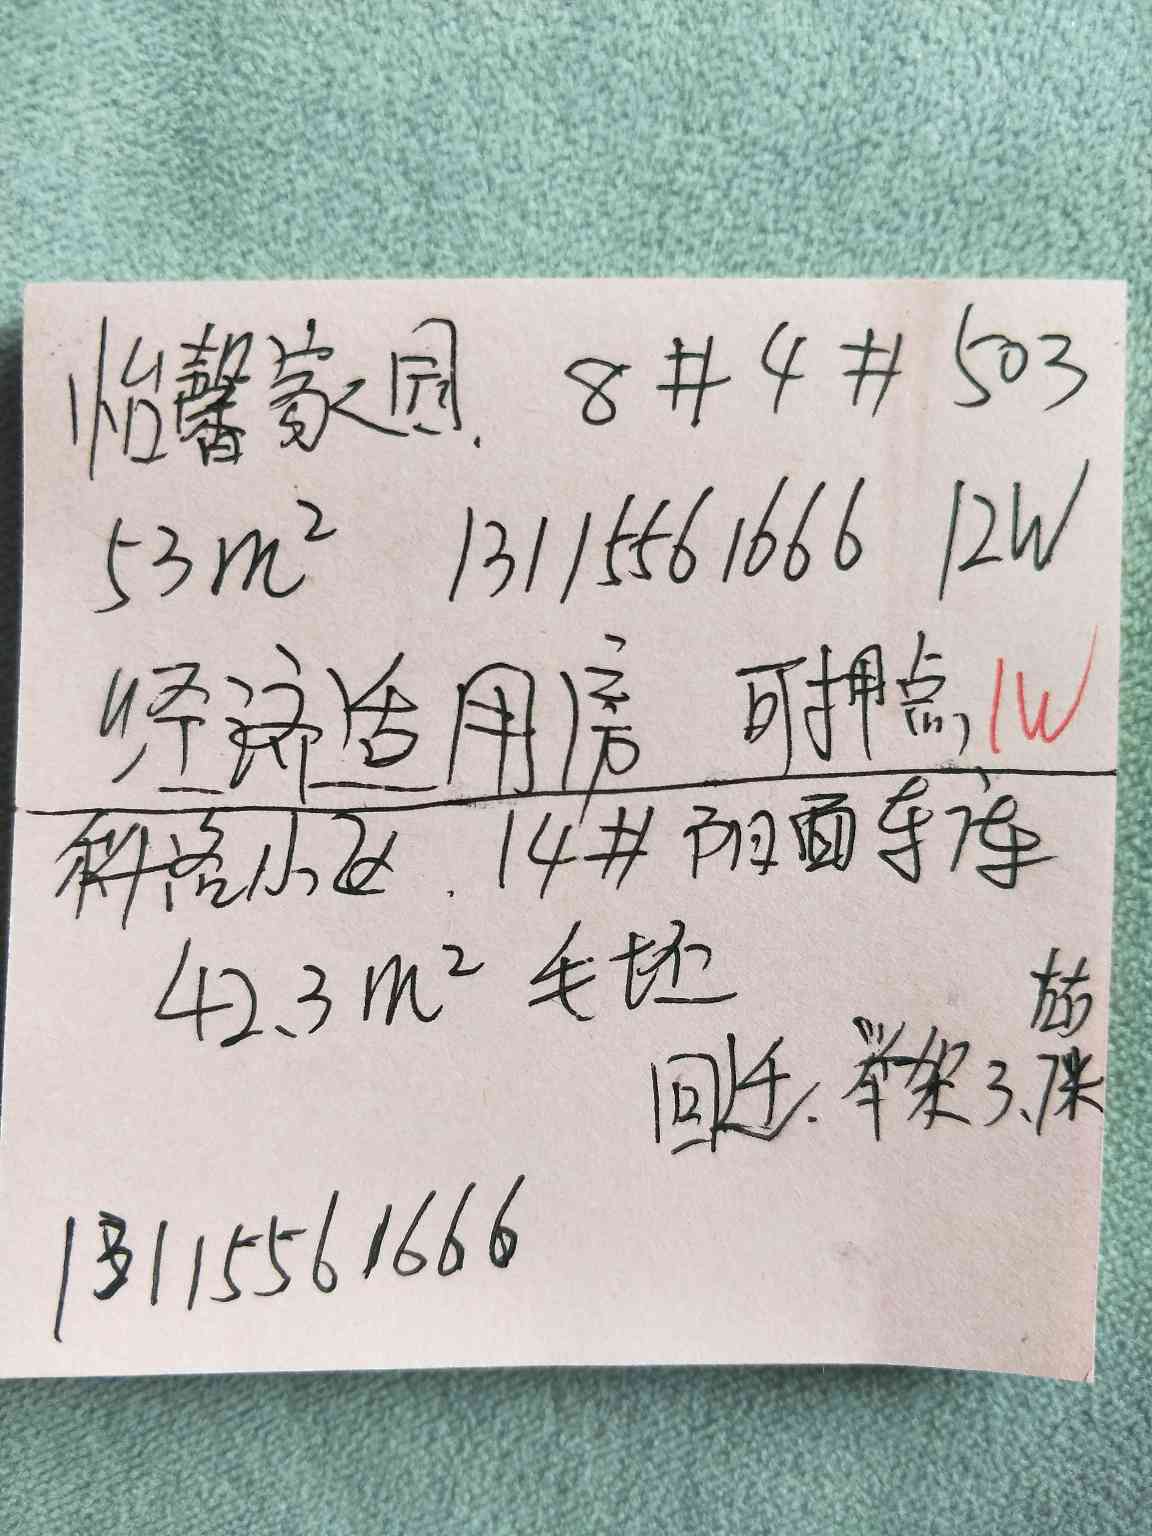 怡馨家园. 8#4#503
53m² 13115561666 12W
经济适用房 可押点1W
科洛小区. 14#阳面车库
42.3m² 毛坯
回迁. 举架3.7米
13115561666